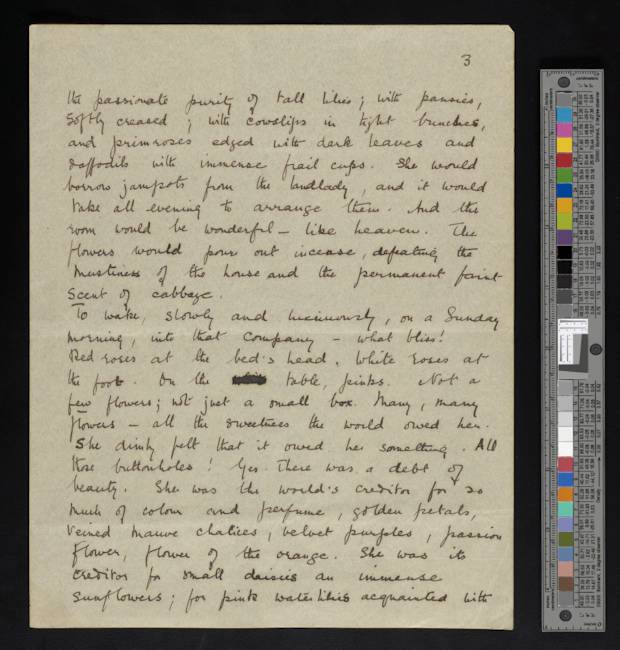 3
the passionate purity of tall lilies; with pansies,
softly creased; with cowslips in tight bunches,
and primroses edged with dark leaves and
daffodils with immense frail cups. She would
borrow jampots from the landlady, and it would
take all evening to arrange them. And the
room would be wonderful – like heaven. The
flowers would pour out incense, defeating the
mustiness of the house and the permanent faint
scent of cabbage.
To wake, slowly and luxuriously, on a Sunday
morning, into that company – what bliss!
Red roses at the bed's head. White roses at
the foot. On the table, pinks. Not a
few flowers; not just a small box. Many, many
flowers – all the sweetness the world owed her.
She dimly felt that it owed her something. All
those buttonholes! Yes there was a debt of
beauty. She was the world's creditor for so
much of colour and perfume, golden petals,
veined mauve chalices, velvet purples, passion
flower, flower of the orange. She was its
creditor for small daisies an immense
sunflowers; for pink waterlilies acquainted with